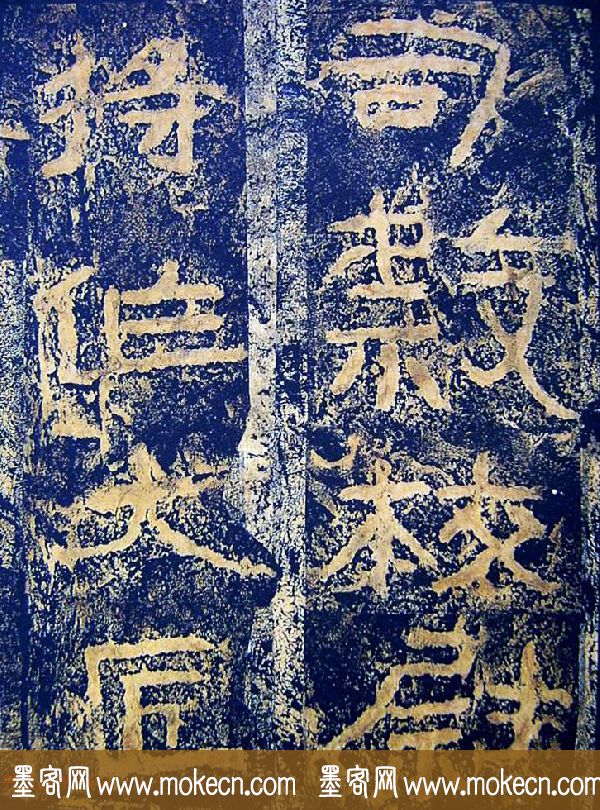 司隸校尉
將作大匠
墨客网 www.mokecn.com 墨客网 www.mokecn.com